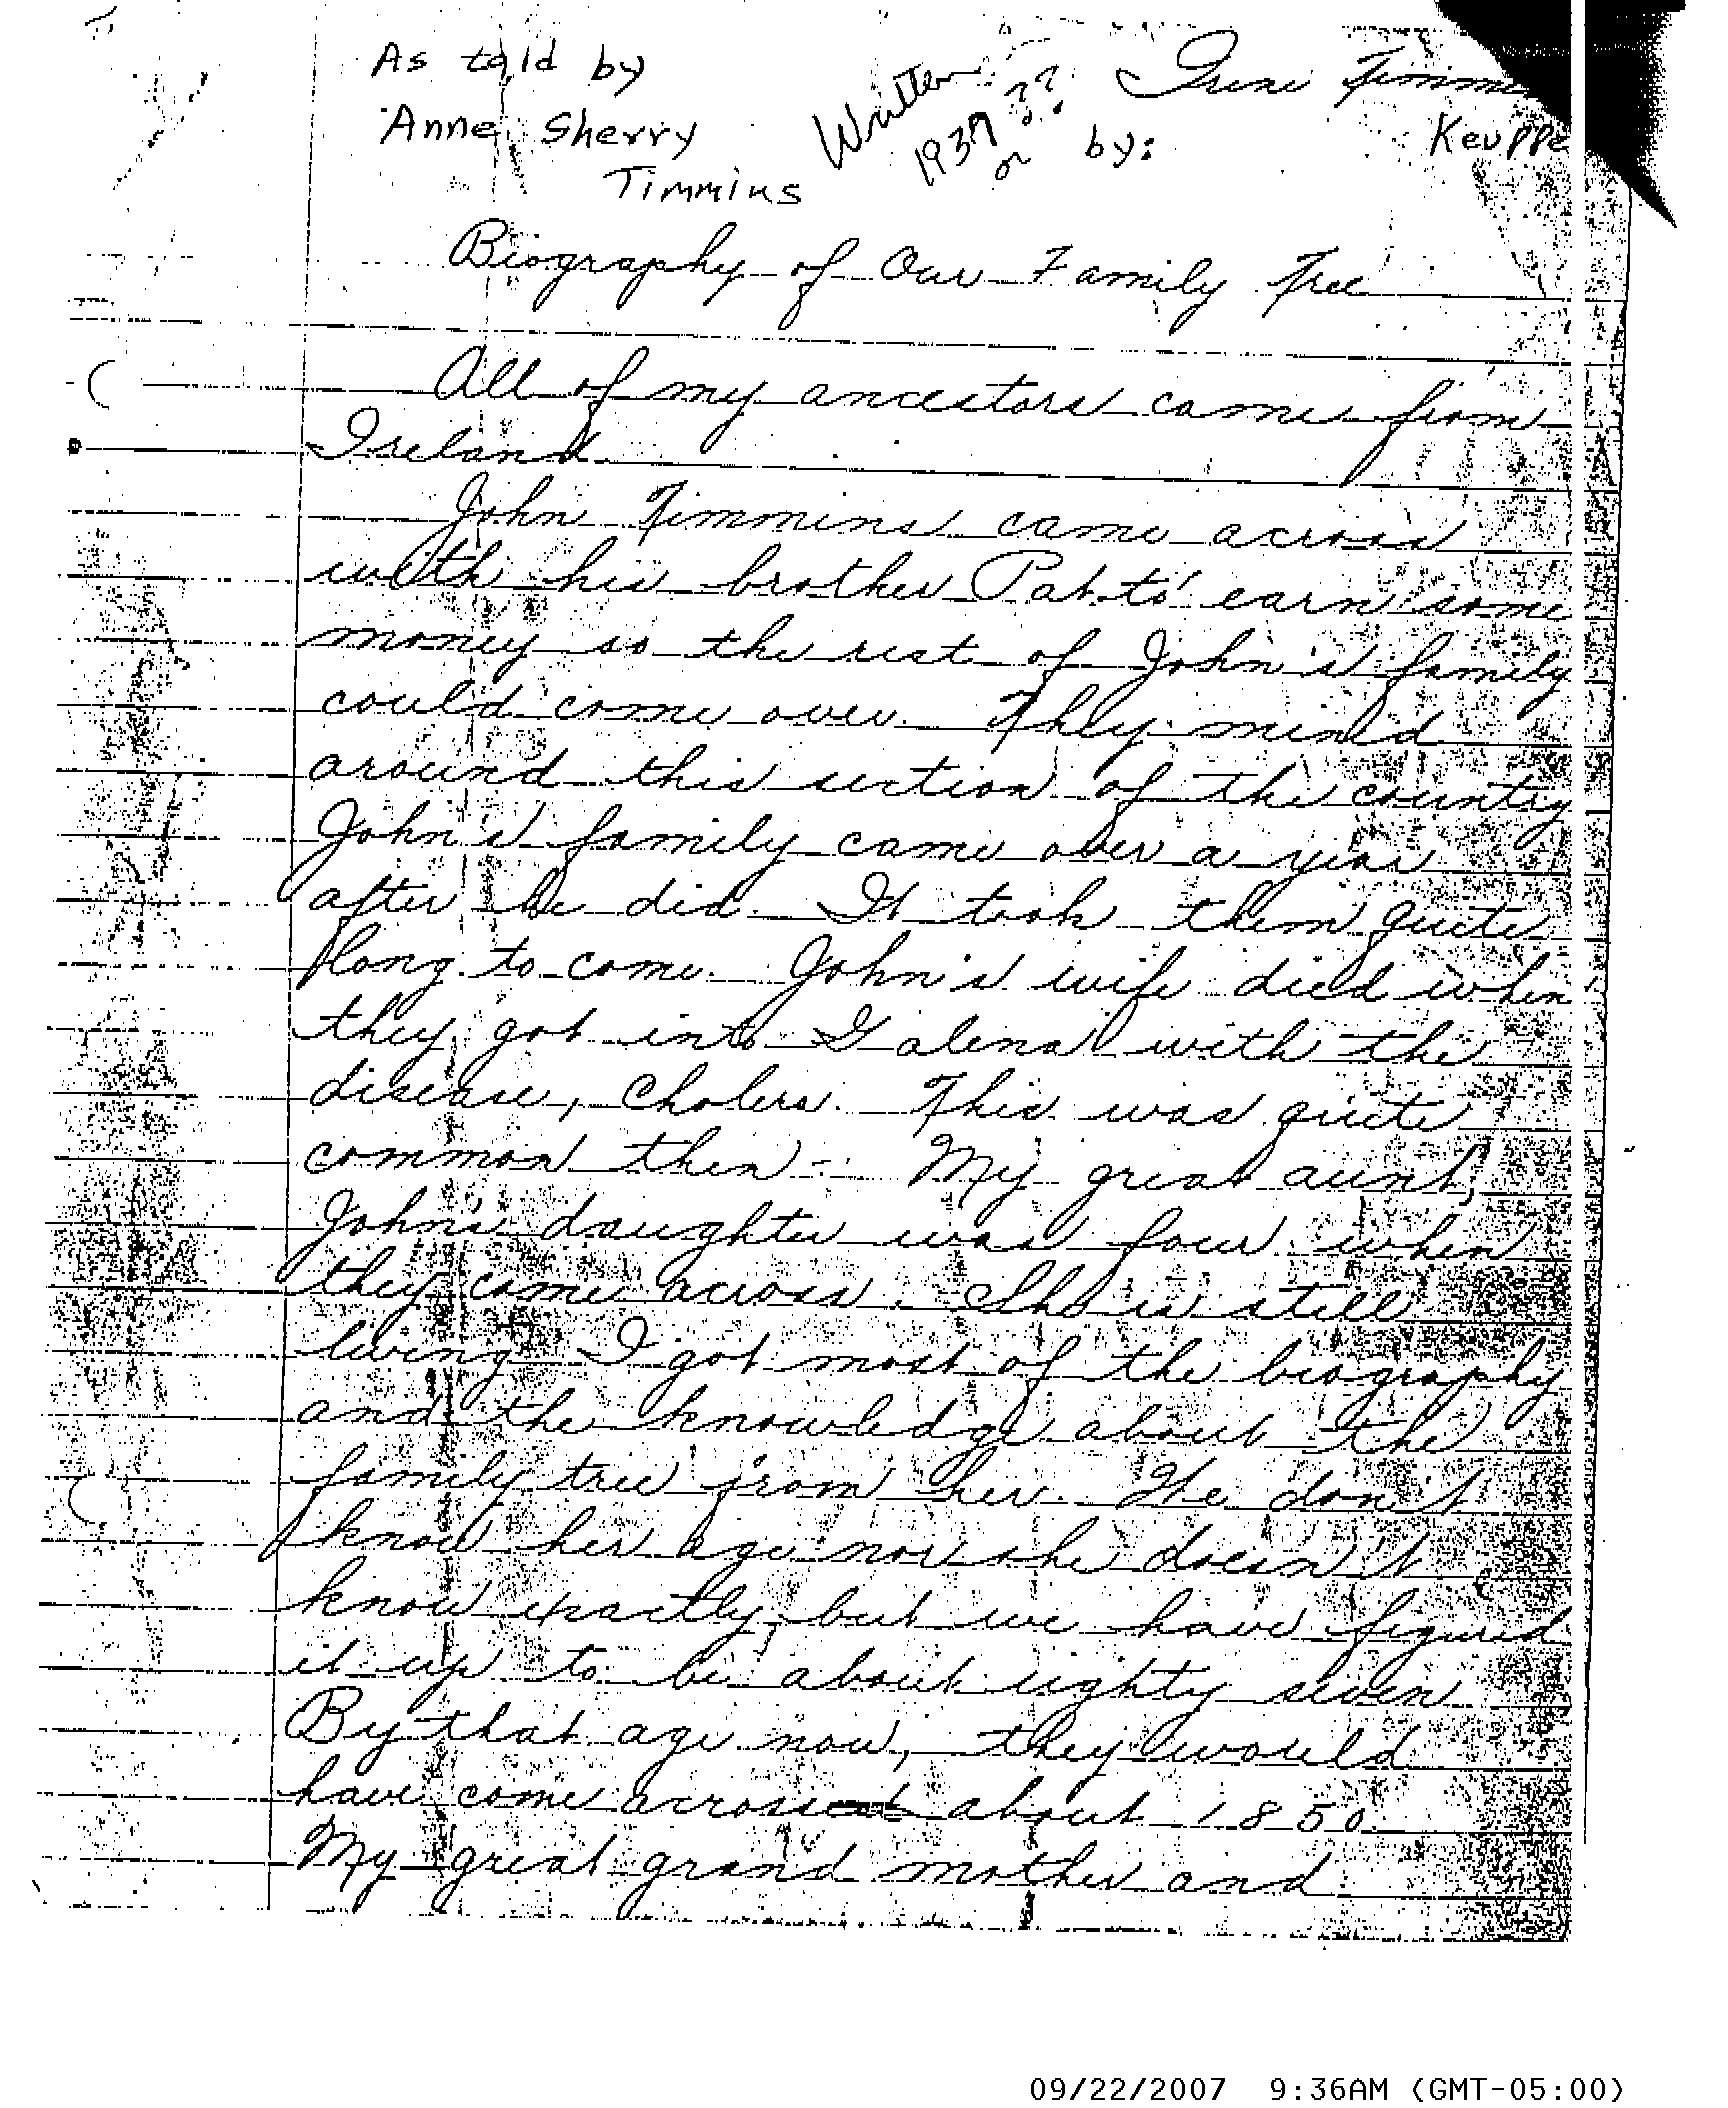 As told by
Anne Sherry
Timmins
Written
1937 ??
or by:
Irene Timm
Keuppe
Biography of Our Family Tree
All of my ancestors came from
Ireland.
John Timmins came across
with his brother Pat to earn some
money so the rest of John's family
could come over. They mined
around this section of the country
John's family came over a year
after he did. It took them quite
long to come. John's wife died when
they got into Galena with the
disease, Cholera. This was quite
common then. My great aunt,
John's daughter was four when
they come across. She is still
living. I got most of the biography
and the knowledge about the
family tree from her. We don't
know her age nor she doesn't
know exactly, but we have figured
it up to be about eighty seven
By that age now, they would
have come across about 1850
My great grand mother and
09/22/2007 9:36AM (GMT-05:00)